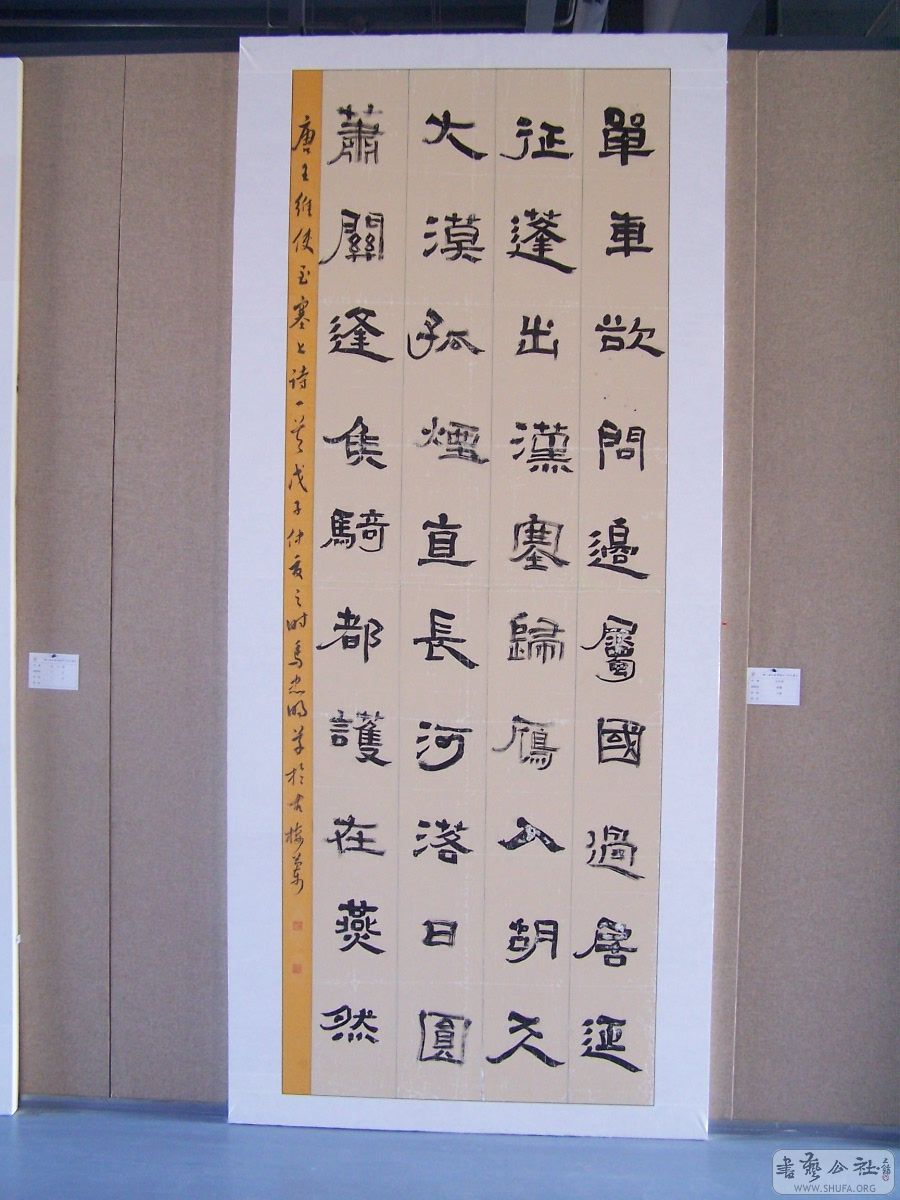 單車欲問邊屬國過居延
征蓬出漢塞歸鴈入胡天
大漠孤煙直長河落日圓
蕭關逢侯騎都護在燕然
唐王維使至塞上诗一首戊子仲夏之时
書藝公社
WWW.SHUFA.ORG